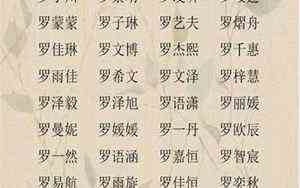 罗蒙蒙 罗子琳 罗艺夫 罗熠舟
罗佳琳 罗文博 罗杰熙 罗千惠
罗雨佳 罗希文 罗文泽 罗梓慧
罗泽毅 罗泽旭 罗语潇 罗丽媛
罗曼妮 罗媛媛 罗一丹 罗欧辰
罗一然 罗语涵 罗嘉恒 罗智宸
罗易航 罗雨旋 罗佳恒 罗奕秋